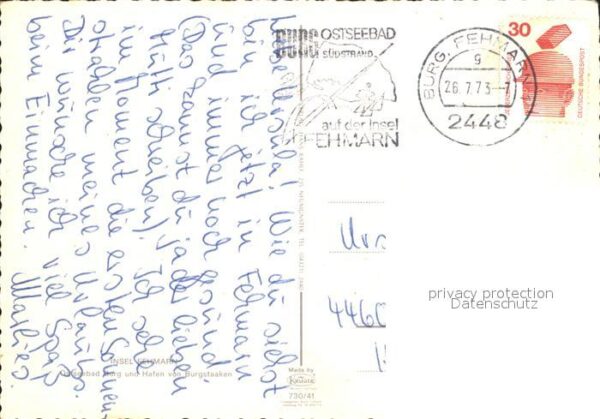 Liebe Ursula! Wie du siehst
bin ich jetzt in Fehmarn
und immer noch gesund
(Das kannst du ja der lieben
Mutti schreiben). Ich sehe
im Moment die ersten Sonnen
strahlen meines Urlaubs.
Dir wünsche ich viel Spaß
beim Einmachen. Marlies
BURG OSTSEEBAD
SÜDSTRAND
auf der Insel
FEHMARN
BURG, FEHMARN
g
26.7.73-7
2448
30
DEUTSCHE BUNDESPOST
Urs
4460
privacy protection
Datenschutz
INSEL FEHMARN
Ostseebad Burg und Hafen von Burgstaaken
Made by
Krüger
730/41